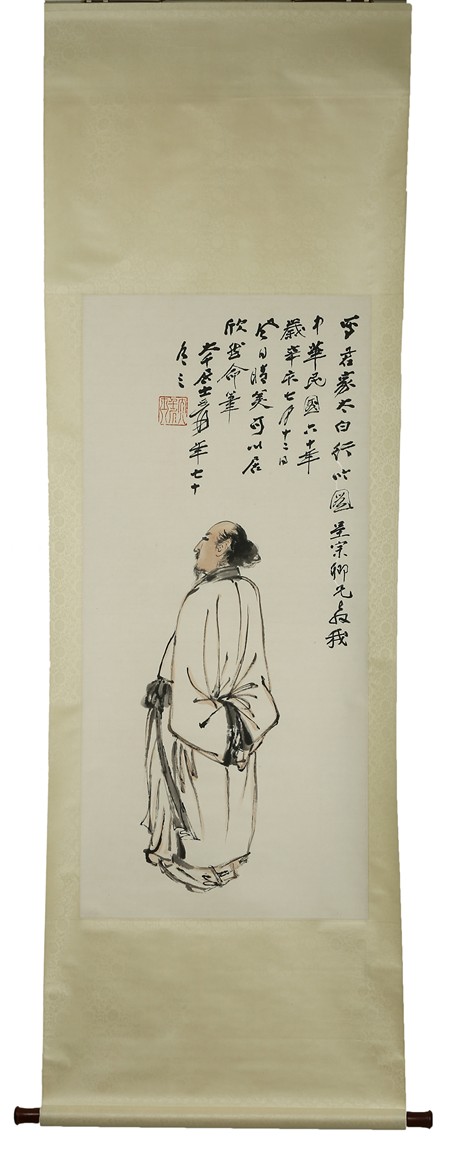 君豪太白行吟圖呈宗卿兄教我
中華民國六十年
歲辛亥七月十二日
日晴美可以居
欣然命筆
大千居士爰年七十
有三